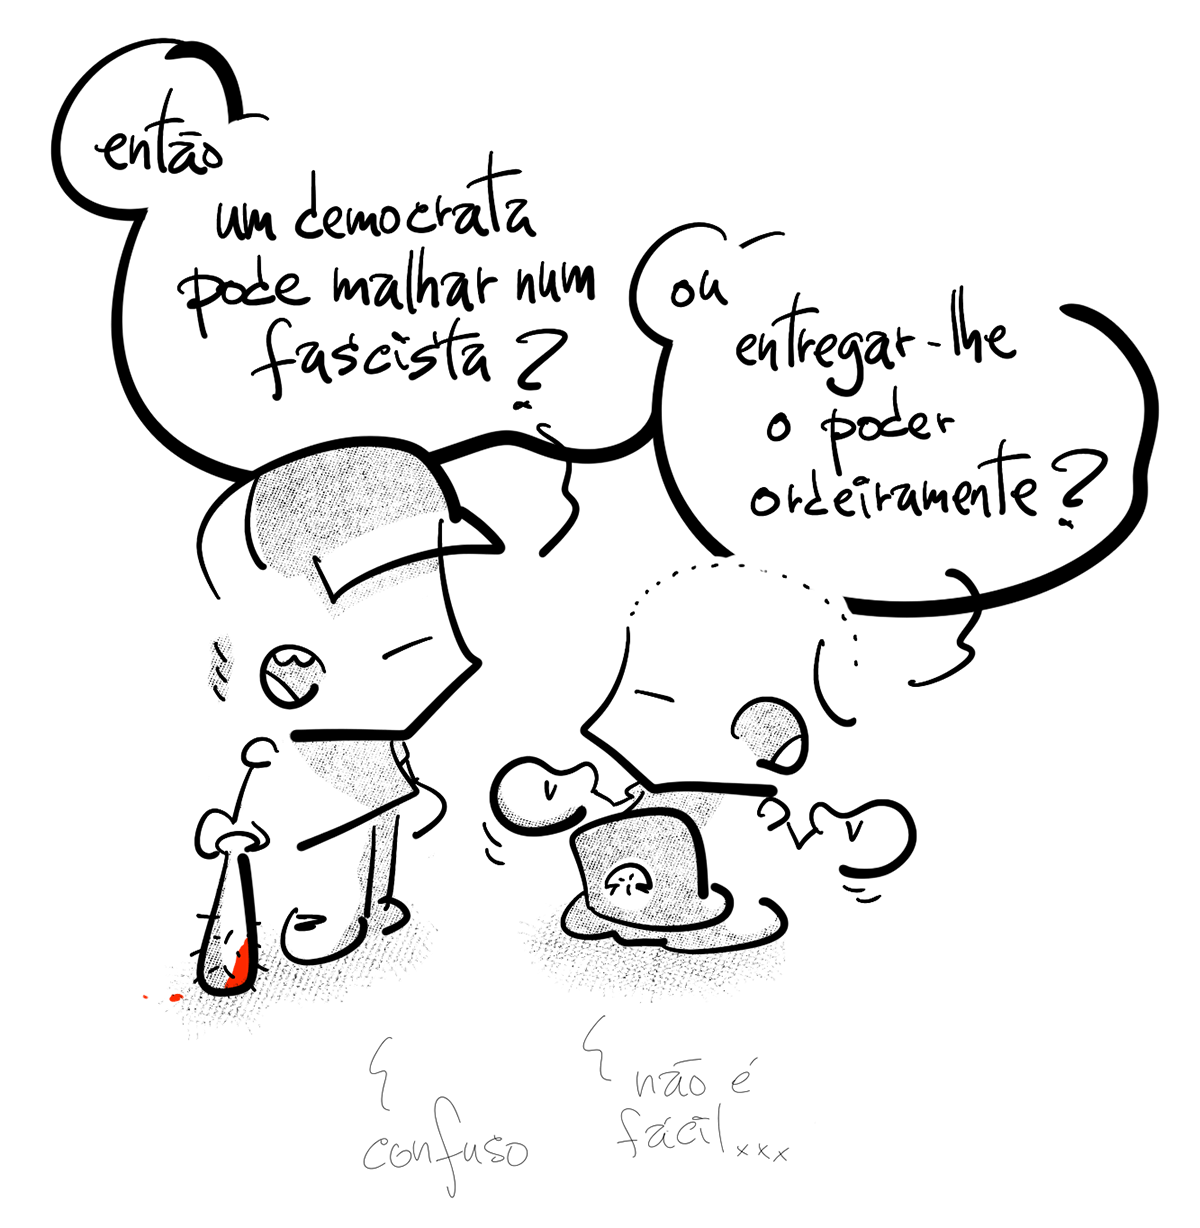 então
um democrata
pode malhar num
fascista?
ou
entregar-lhe
o poder
ordeiramente?
confuso
não é
fácil...